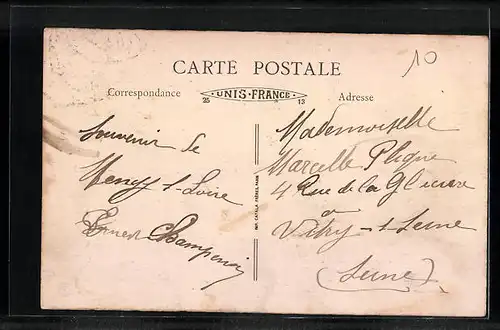 10
CARTE POSTALE
Correspondance
25 UNIS-FRANCE 13
Adresse
Souvenir de
s-Loire
Ernest
Mademoiselle
Marcelle
4 Rue de la
a
Vitry-s-Seine
(Seine)
IMP. CATALA FRÈRES, PARIS